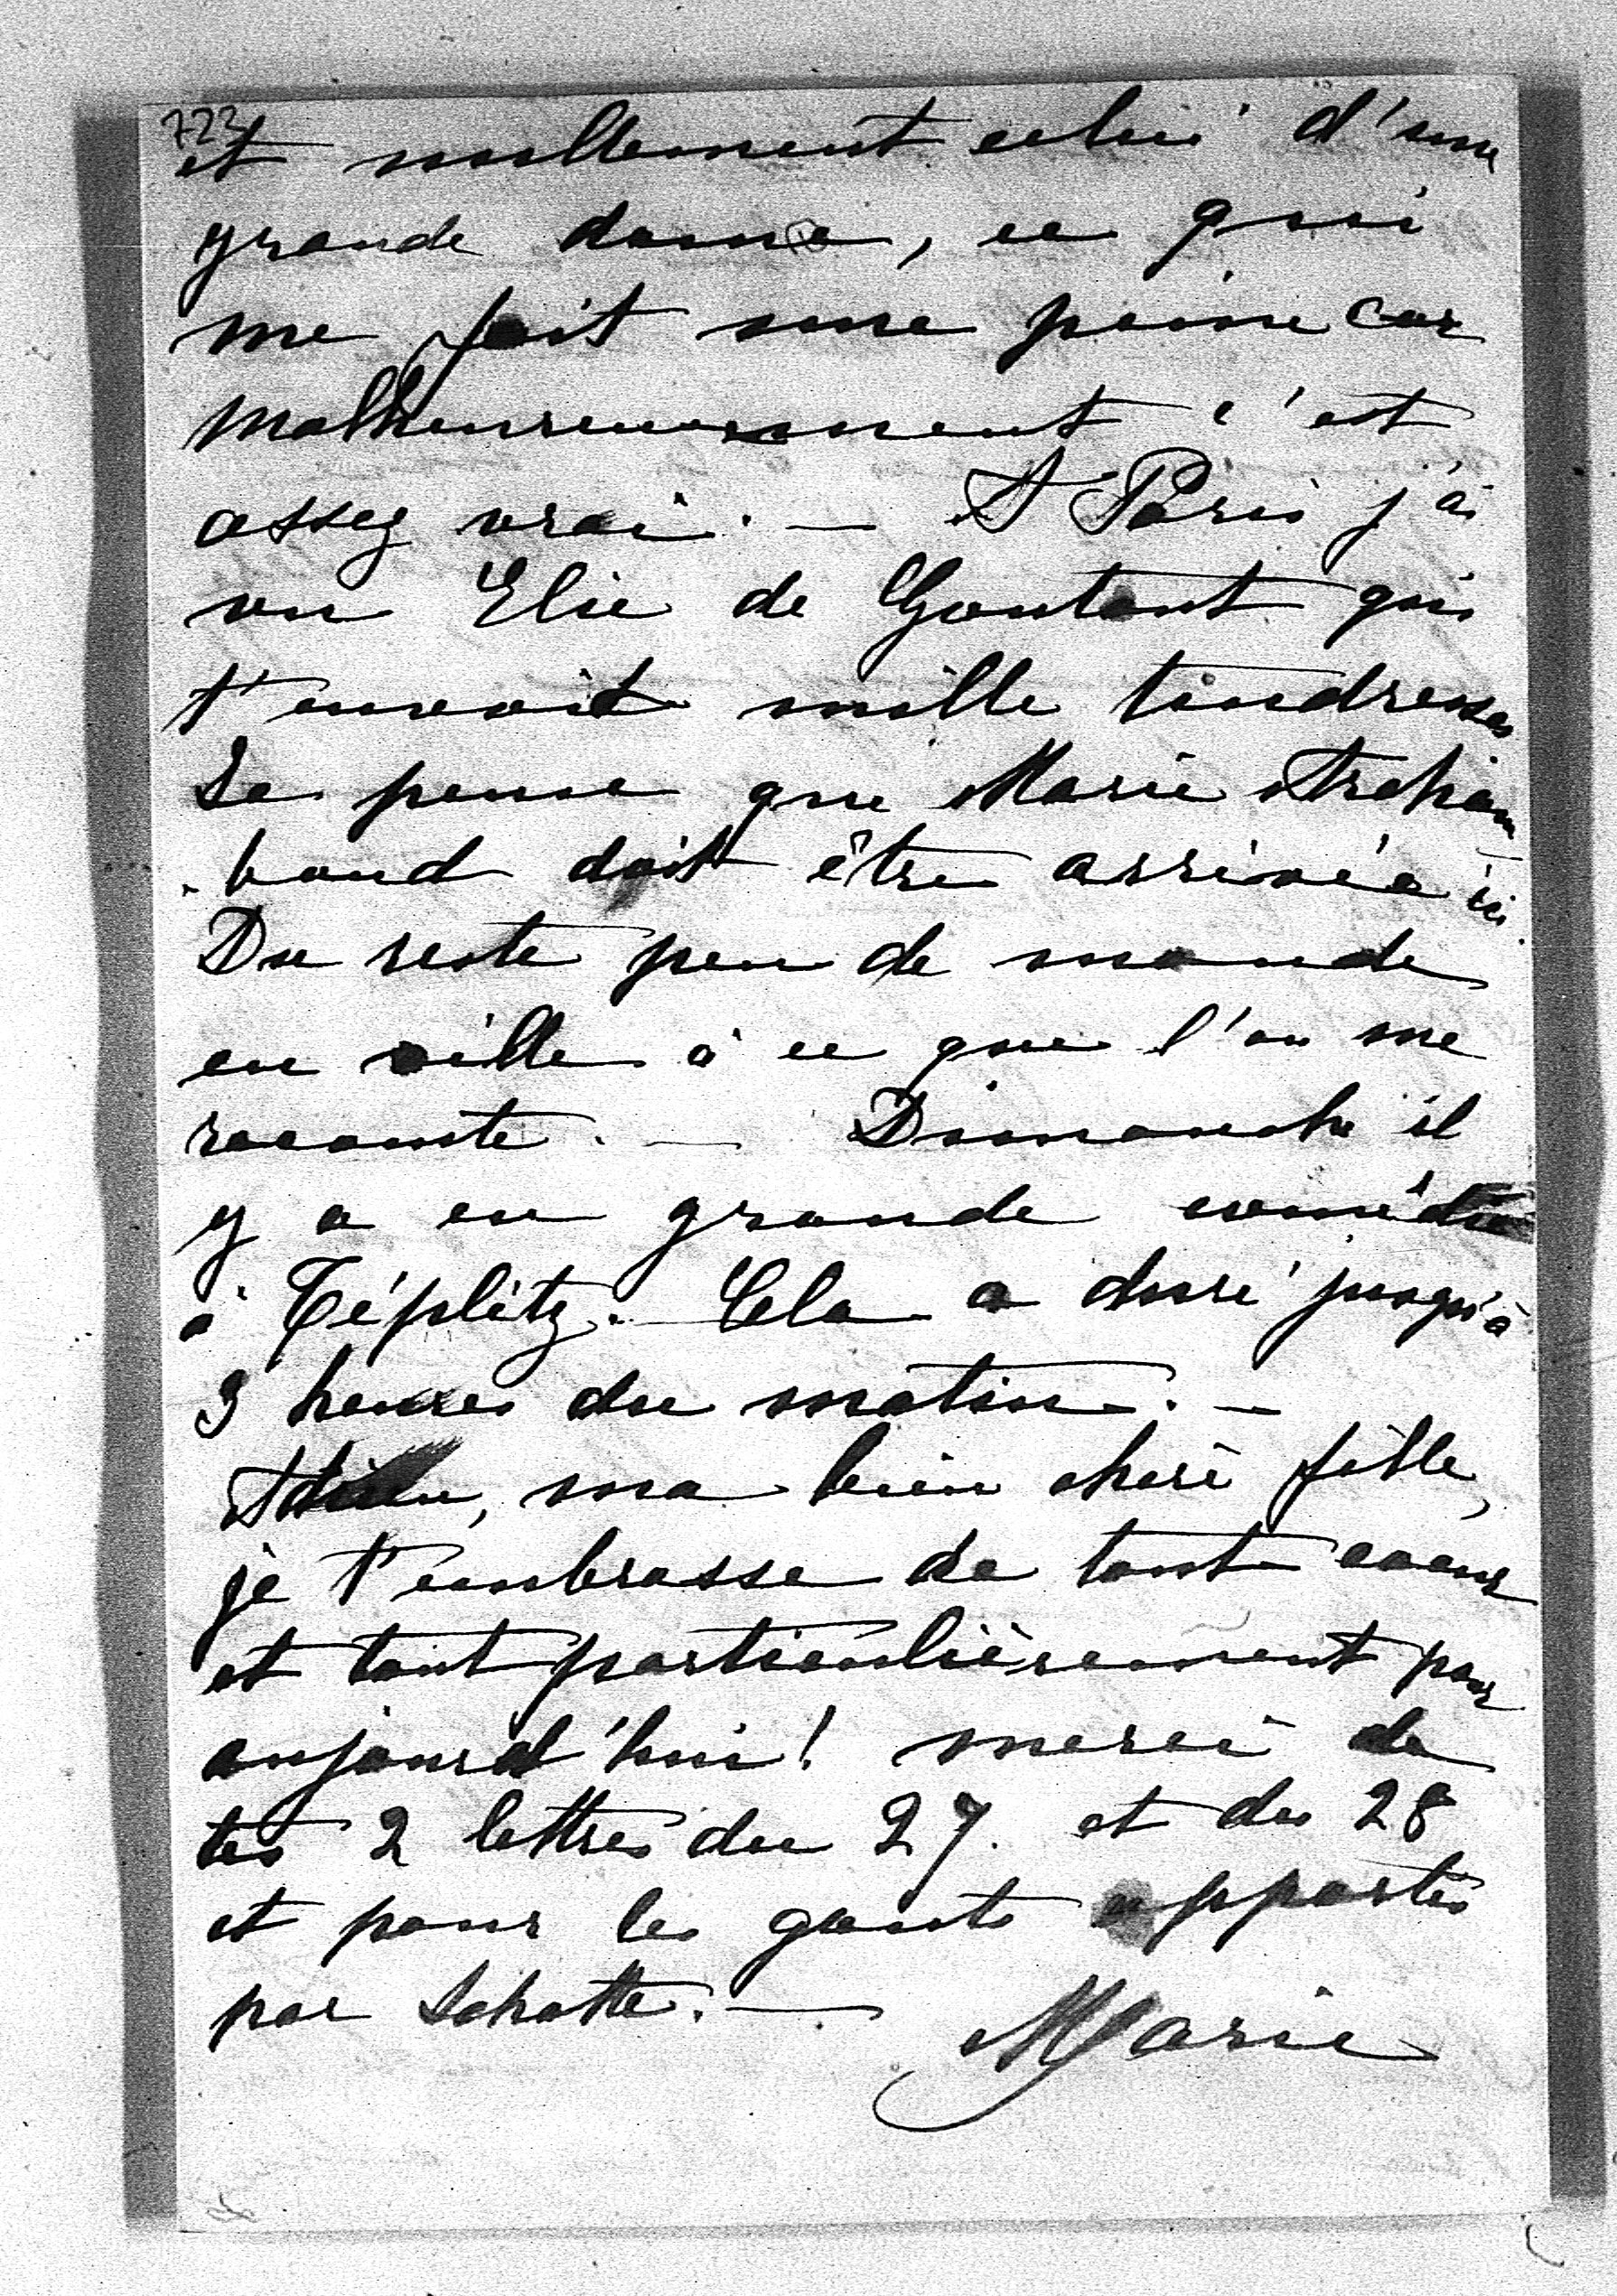 723
et nullement celui d'une
grande dame, ce qui
me fait une peine car
malheureusement c'est
assez vrai. — A Paris j'ai
vu Elie de Gontaut qui
t'envoit mille tendresses
Je pense que Marie Archam
-baud doit être arrivée ici.
Du reste peu de monde
en ville à ce que l'on me
raconte. — Dimanche il
y a eu grande comédie
à Téplitz. Cela a duré jusqu'à
3 heures du matin. —
Adieu, ma bien chère fille,
je t'embrasse de tout coeur
et tout particulièrement pour
aujourd'hui! merci de
tes 2 lettres du 27. et du 28
et pour les gants apportés
par Schatte. —
Marie